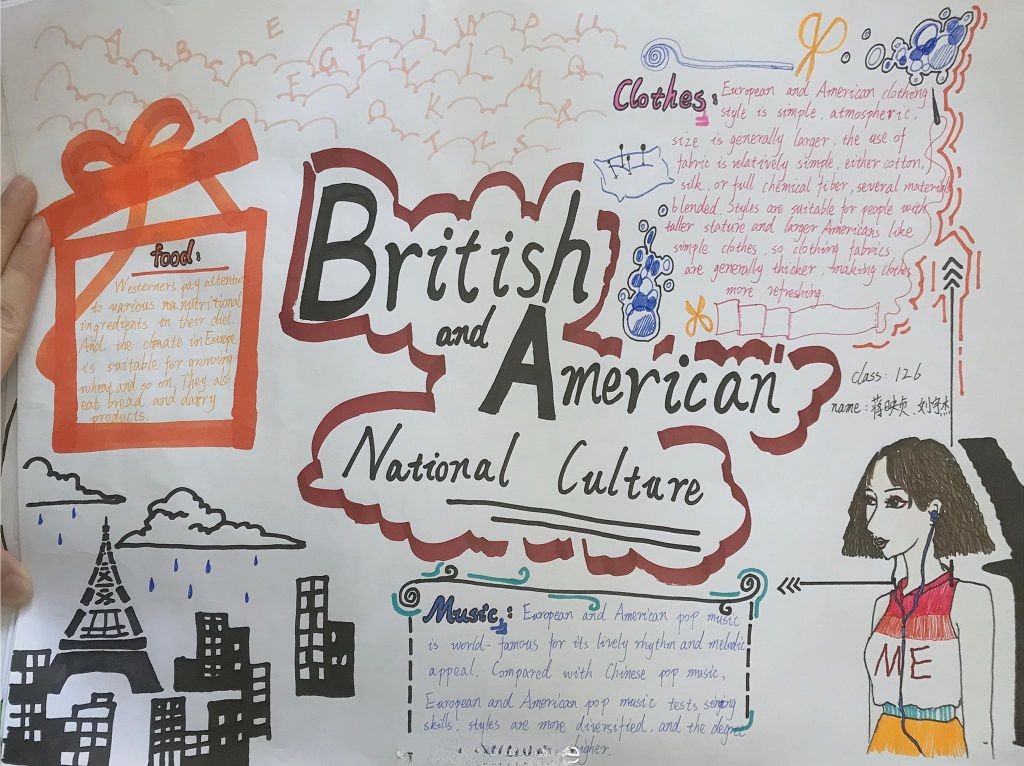 A B C D E F G H I J K L M N O P Q R S T U
British
and American
National Culture
food:
Westerners pay attention
to various nutritional
ingredients in their diet.
And the climate in Europe
is suitable for growing
wheat and so on, They also
eat bread and dairy
products.
Clothes: European and American clothing
style is simple, atmospheric,
size is generally larger, the use of
fabric is relatively simple, either cotton,
silk, or full chemical fiber, several materials
blended. Styles are suitable for people with
taller stature and larger Americans like
simple clothes, so clothing fabrics
are generally thicker, making clothes
more refreshing.
class: 126
name: 蒋映贞、刘宇杰
ME
Music: European and American pop music
is world-famous for its lively rhythm and melodic
appeal. Compared with Chinese pop music,
European and American pop music tests singing
skills, styles are more diversified, and the degree
higher.